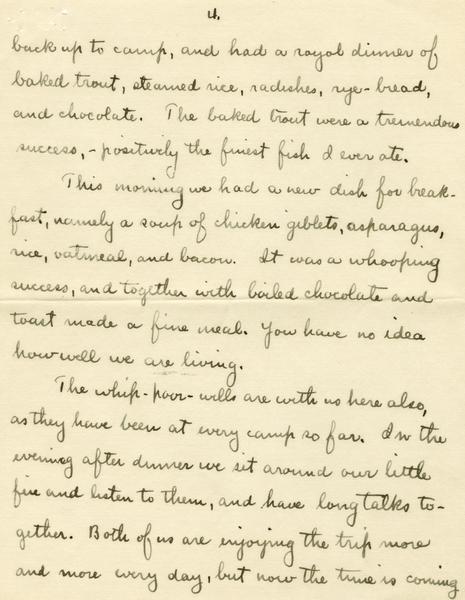 4.
back up to camp, and had a royal dinner of
baked trout, steamed rice, radishes, rye-bread,
and chocolate. The baked trout were a tremendous
success, - positively the finest fish I ever ate.
This morning we had a new dish for break-
fast, namely a soup of chicken giblets, asparagus,
rice, oatmeal, and bacon. It was a whooping
success, and together with boiled chocolate and
toast made a fine meal. You have no idea
how well we are living.
The whip-poor-wills are with us here also,
as they have been at every camp so far. In the
evening after dinner we sit around our little
fire and listen to them, and have long talks to-
gether. Both of us are enjoying the trip more
and more every day, but now the time is coming